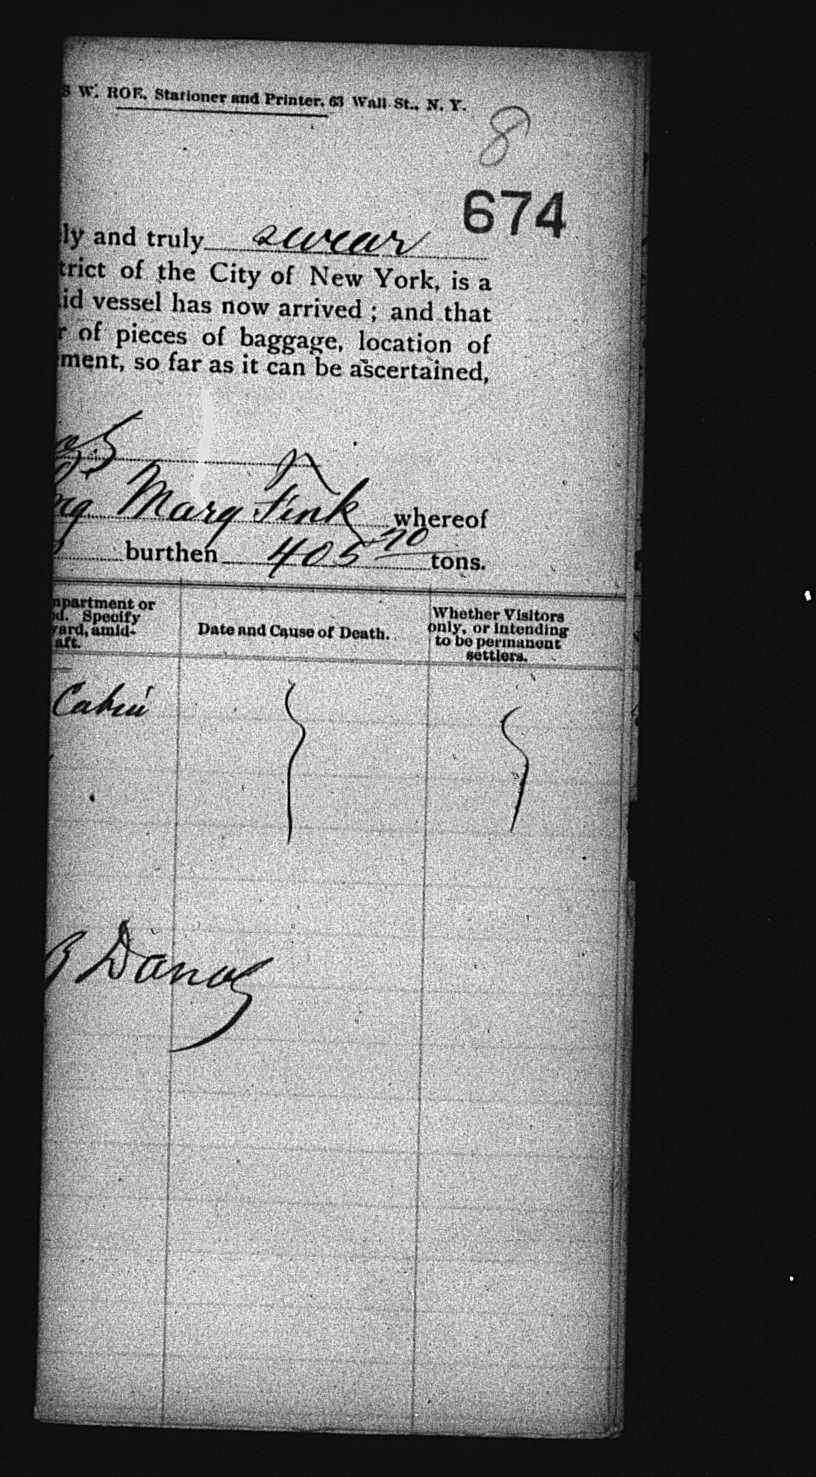 S W. ROE, Stationer and Printer, 63 Wall St., N. Y.
8
674
ly and truly swear
trict of the City of New York, is a
id vessel has now arrived ; and that
r of pieces of baggage, location of
ment, so far as it can be ascertained,
Mary Fink whereof
burthen 405 70 tons.
mpartment or
d. Specify
vard, amid-
aft.
Date and Cause of Death.
Whether Visitors
only, or intending
to be permanent
settlers.
Cabin
B